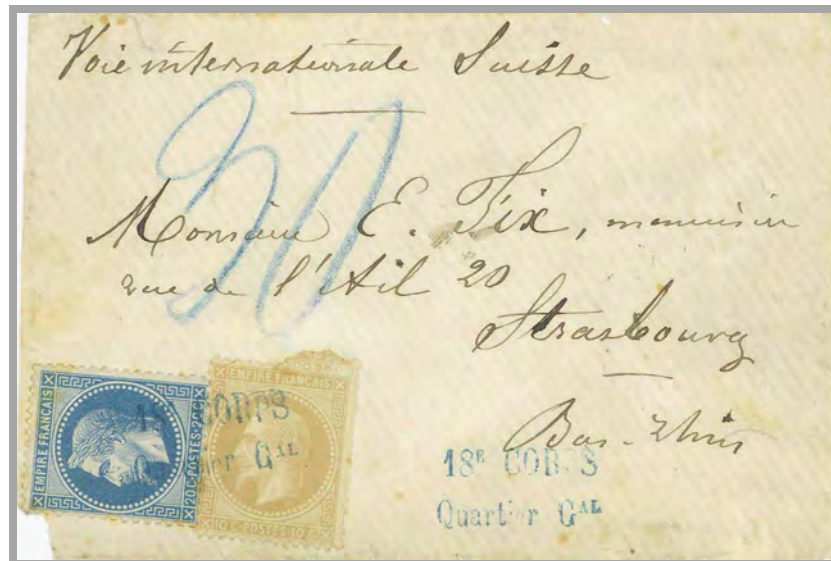 Voie internationale Suisse
30
Monsieur E. Fix, menuisier
rue de l'Ail 20
Strasbourg
Bas-Rhin
EMPIRE FRANÇAIS
20 C-POSTES-20 C
EMPIRE FRANÇAIS
10 C-POSTES-10 C
18E CORPS
Quartier GAL
18E CORPS
Quartier GAL